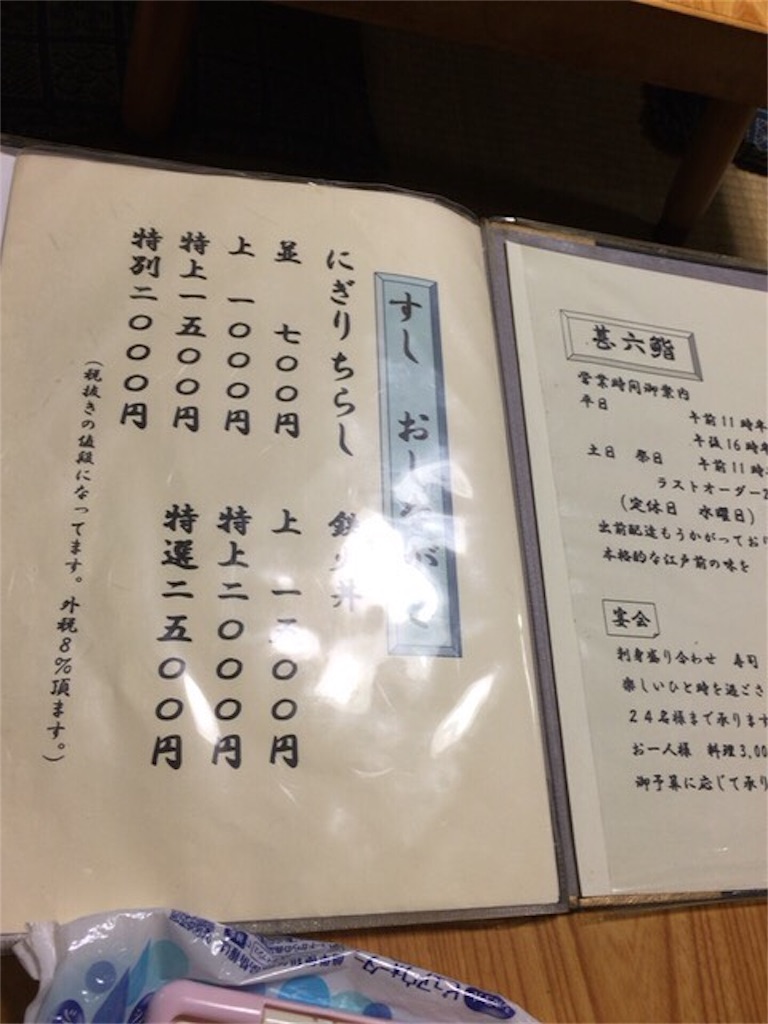 すし おしながき
にぎりちらし
並 七〇〇円
上 一〇〇〇円
特上一五〇〇円
特別二〇〇〇円
鉄火丼
上 一五〇〇円
特上二〇〇〇円
特選二五〇〇円
(税抜きの値段になってます。外税8%頂ます。)
甚六鮨
営業時間御案内
平日 午前11時
午後16時
土日 祭日 午前11時
ラストオーダー2
(定休日 水曜日)
出前配達もうかがってお
本格的な江戸前の味を
宴会
刺身盛り合わせ 寿司
楽しいひと時を過ごさ
24名様まで承ります
お一人様 料理3,00
御予算に応じて承り
ピュアウォーター